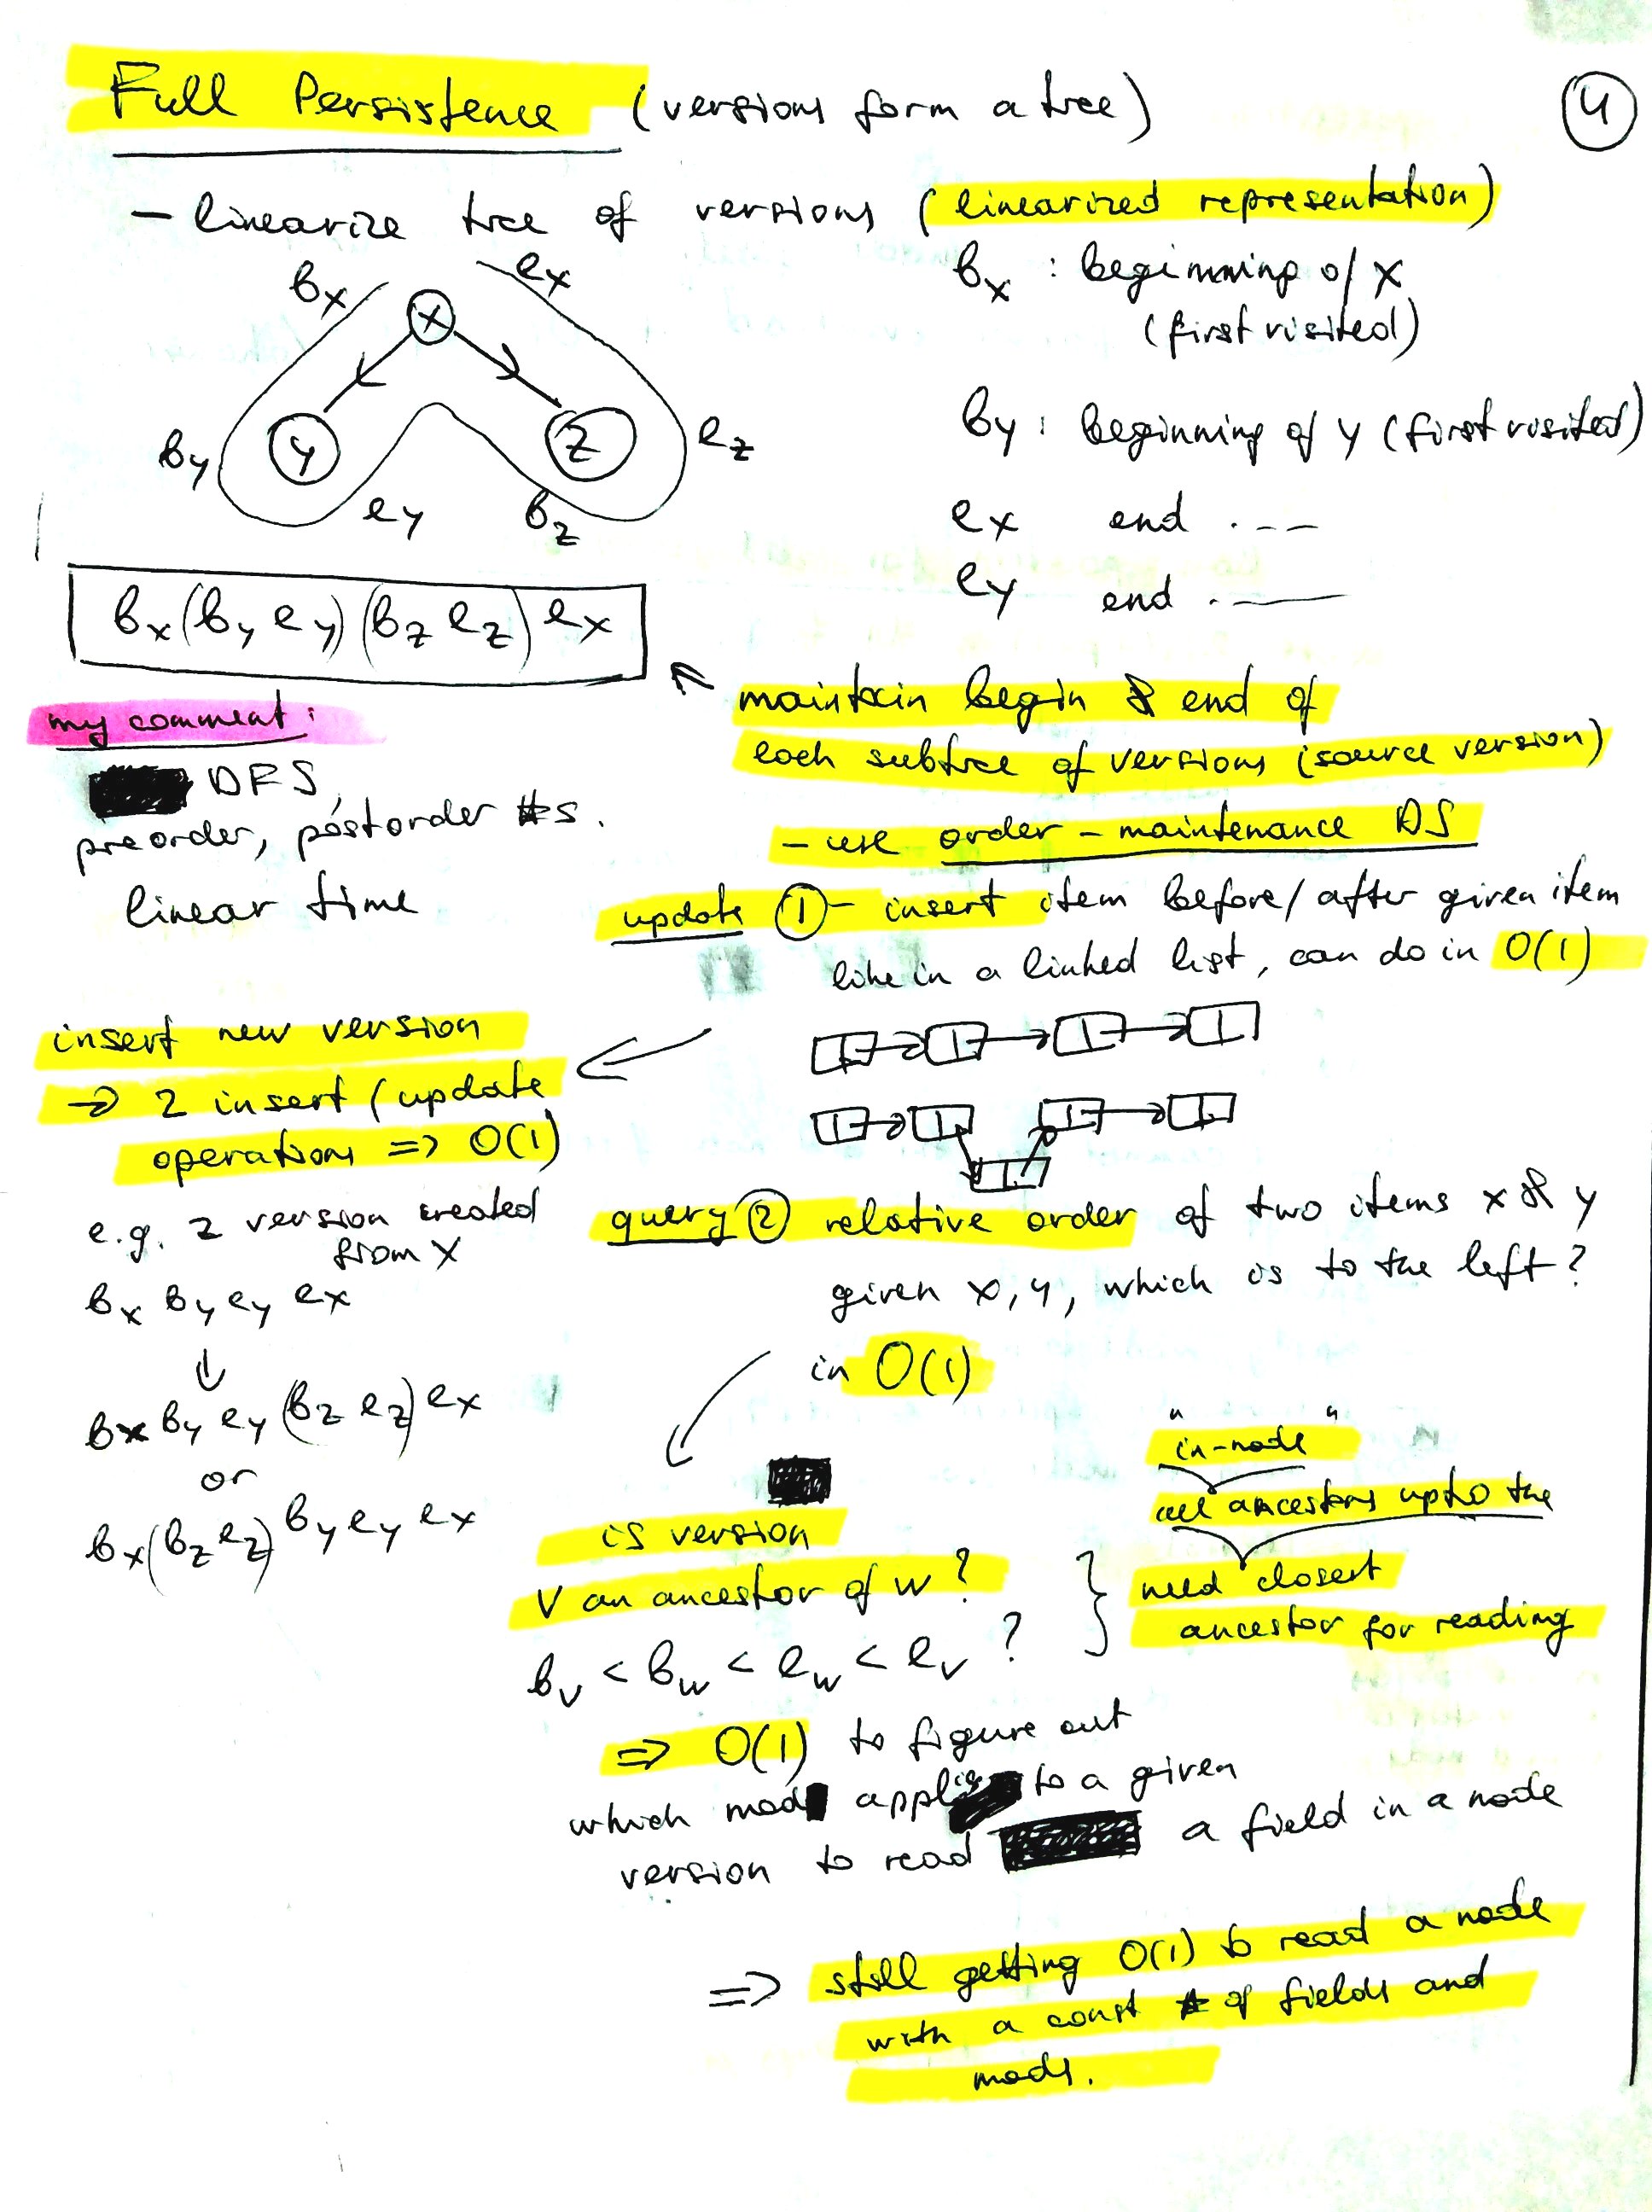 Full Persistence (versions form a tree)
4
– linearize tree of versions (linearized representation)
bx ex
x
y z
by ey bz ez
bx : beginning of x
(first visited)
by : beginning of y (first visited)
ex end . – –
ey end . ––
bx (by ey) (bz ez) ex
maintain begin & end of
each subtree of versions (source version)
– use order – maintenance DS
my comment:
DFS
preorder, postorder #s.
linear time
update ① – insert item before/after given item
like in a linked list, can do in O(1)
insert new version
→ 2 insert (update
operations => O(1)
e.g. z version created
from x
bx by ey ex
↓
bx by ey (bz ez) ex
or
bx (bz ez) by ey ex
query ② relative order of two items x & y
given x, y, which is to the left?
in O(1)
is version
v an ancestor of w?
bv < bw < ew < ev ?
"in-node"
all ancestors upto the
need closest
ancestor for reading
=> O(1) to figure out
which mod applies to a given
version to read a field in a node
=> still getting O(1) to read a node
with a const # of fields and
mods.